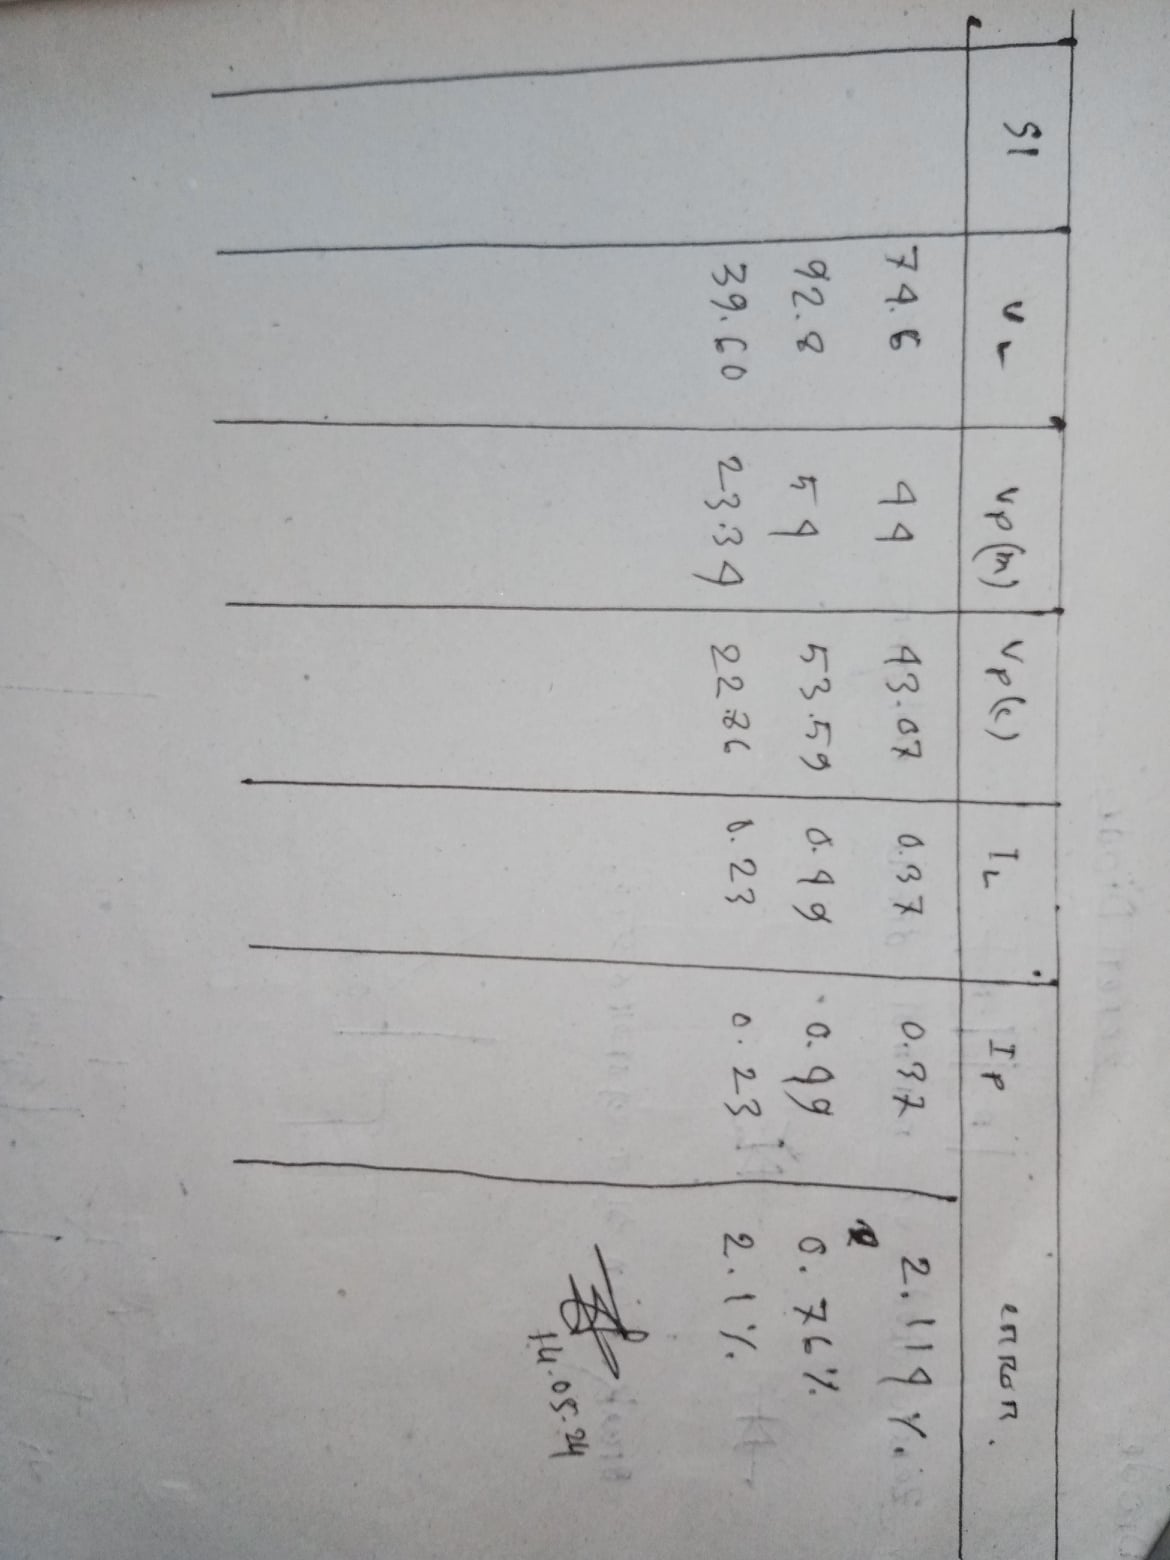 Sl VL Vp(m) Vp(c) IL Ip error.
74.6 44 43.07 0.37 0.37 2.114 %.
92.8 54 53.59 0.49 0.49 0.76%.
39.60 23.34 22.86 0.23 0.23 2.1%.
14.05.24